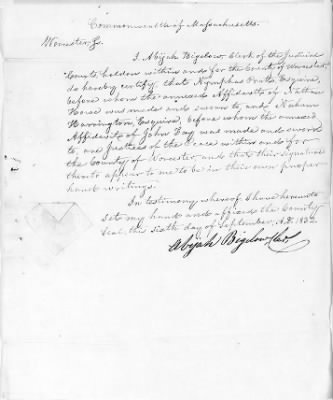 Commonwealth of Massachusetts.
Worcester, Ss.
I Abijah Bigelow, Clerk of the Judicial
Courts holden within and for the County of Worcester,
do hereby certify, that Nymphas Pratt Esquire,
before whom the annexed Affidavit of Nathan
Howe was made and sworn to, and Nahum
Harrington, Esquire, before whom the annexed
Affidavit of John Fay was made and sworn
to, are Justices of the Peace within and for
the County of Worcester, and that their signatures
thereto appear to me to be in their own proper
hand writings.
In testimony whereof I have hereunto
set my hand and affixed the County
Seal this sixth day of September, A.D. 1832.
Abijah Bigelow